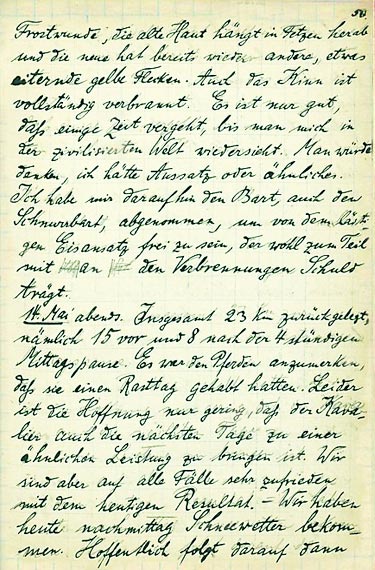 50
Frostwunde, die alte Haut hängt in Fetzen herab
und die neue hat bereits wieder andere, etwas
eiternde gelbe Flecken. Auch das Kinn ist
vollständig verbrannt. Es ist nur gut,
daß einige Zeit vergeht, bis man mich in
der zivilisierten Welt wiedersieht. Man würde
denken, ich hätte Aussatz oder ähnliches.
Ich habe mir daraufhin den Bart, auch den
Schnurrbart, abgenommen, um von dem lästi-
gen Eisansatz frei zu sein, der wohl zum Teil
mit an den Verbrennungen Schuld
trägt.
14. Mai abends. Insgesamt 23 km zurückgelegt,
nämlich 15 vor und 8 nach der 4 stündigen
Mittagspause. Es war den Pferden anzumerken,
daß sie einen Rasttag gehabt hatten. Leider
ist die Hoffnung nur gering, daß der Kava-
lier auch die nächsten Tage zu einer
ähnlichen Leistung zu bringen ist. Wir
sind aber auf alle Fälle sehr zufrieden
mit dem heutigen Resultat. – Wir haben
heute nachmittag Schneewetter bekom-
men. Hoffentlich folgt darauf dann